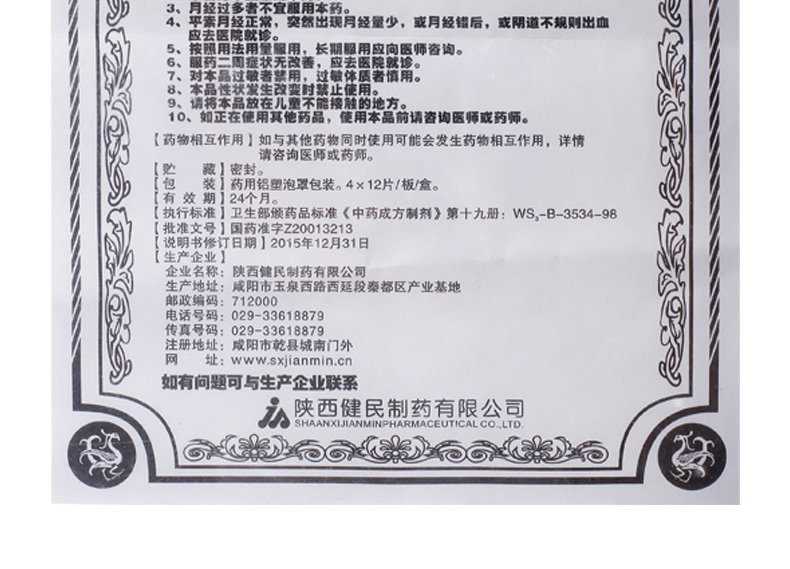 3、月经过多者不宜服用本药。
4、平素月经正常，突然出现月经量少，或月经错后，或阴道不规则出血
应去医院就诊。
5、按照用法用量服用，长期服用应向医师咨询。
6、服药二周症状无改善，应去医院就诊。
7、对本品过敏者禁用，过敏体质者慎用。
8、本品性状发生改变时禁止使用。
9、请将本品放在儿童不能接触的地方。
10、如正在使用其他药品，使用本品前请咨询医师或药师。
【药物相互作用】如与其他药物同时使用可能会发生药物相互作用，详情
请咨询医师或药师。
【贮 藏】密封。
【包 装】药用铝塑泡罩包装。4×12片/板/盒。
【有 效 期】24个月。
【执行标准】卫生部颁药品标准《中药成方制剂》第十九册：WS₃-B-3534-98
【批准文号】国药准字Z20013213
【说明书修订日期】2015年12月31日
【生产企业】
企业名称：陕西健民制药有限公司
生产地址：咸阳市玉泉西路西延段秦都区产业基地
邮政编码：712000
电话号码：029-33618879
传真号码：029-33618879
注册地址：咸阳市乾县城南门外
网 址：www.sxjianmin.cn
如有问题可与生产企业联系
陕西健民制药有限公司
SHAANXIJIANMINPHARMACEUTICAL CO.,LTD.